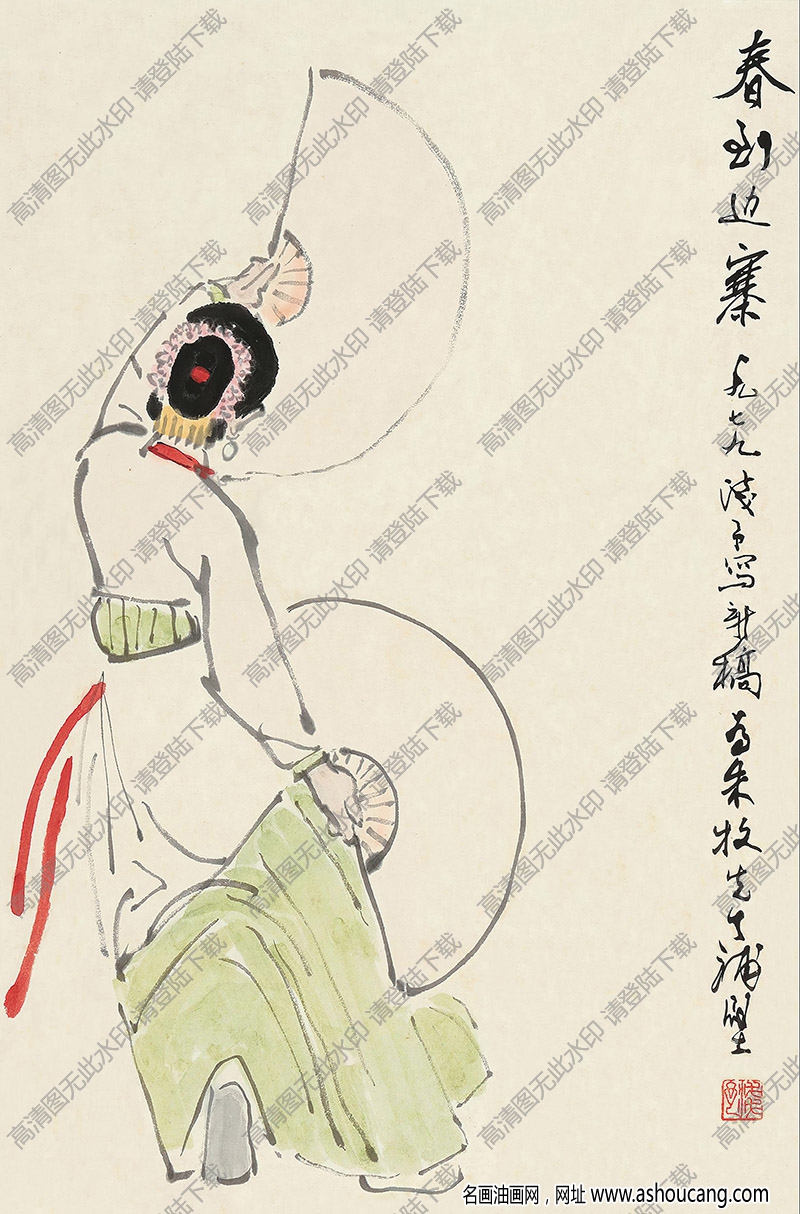 春到边寨 一九七九 浅予写新稿 为朱牧先生补壁
高清图无此水印 请登陆下载
名画油画网，网址 www.ashoucang.com